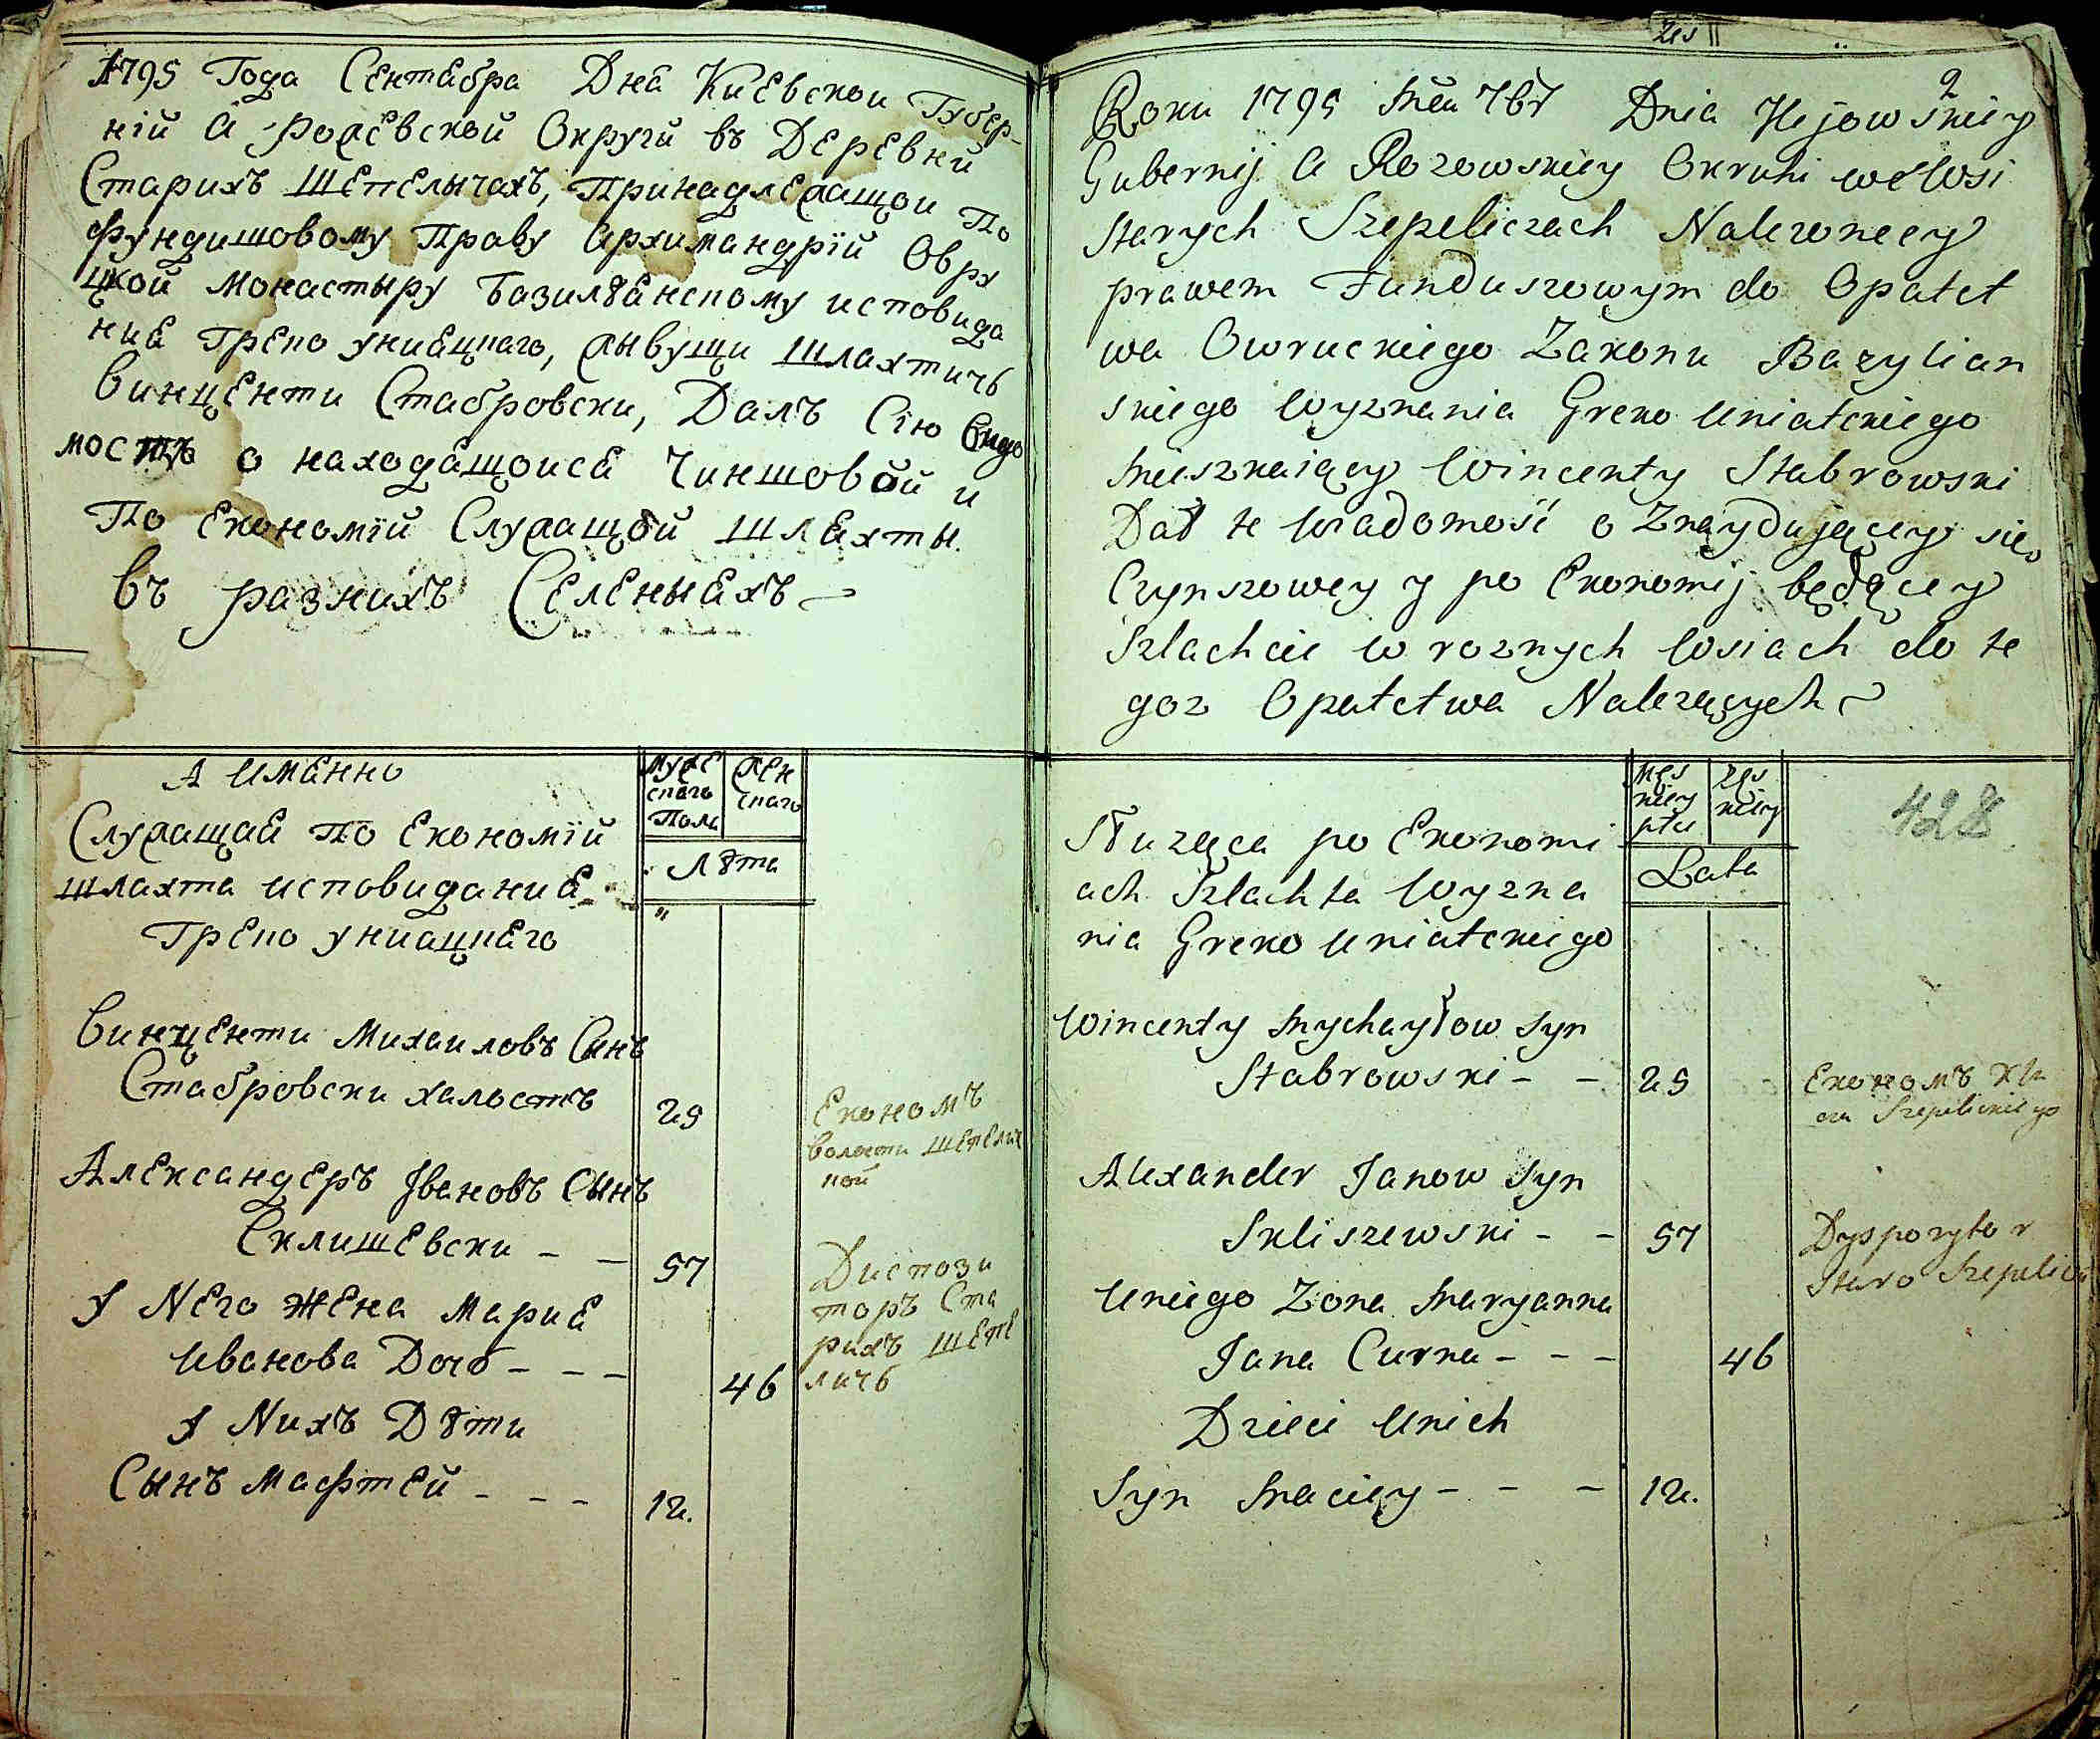 1795 Года Сентабра Дна Киевскои Губер-
ніи а Рожевской Округи въ Деревни
Старихъ Шепелычахъ, Принадлежащои По
Фундишовому Праву Архимандріи Овру
цкои Монастыру Базилѣанскому исповида
ниа Греко униацкаго, живущи шляхтичь
Винценти Стабровски, Далъ Сію Видо
мость о находащоиса Чиншовой и
По Економїи Служащои шлахты.
въ разнихъ Селеныахъ
А Иманно
Служащаа По Економїи
шлахта исповиданиа
Греко униацкаго
Муже
скаго
Пола
Жен
скаго
Лѣта
Винценти Михаиловъ Сынъ
Стабровски халостъ
25
Економъ
Волости Шепелич
кой
Александеръ Івановъ Сынъ
Склишевски - -
57
Диспози
торъ Ста
рихъ Шепе
личь
У Него Жена Мариа
Иванова Дочь - - -
46
У Нихъ Дѣти
Сынъ Мафтей - - -
12.
2
Roku 1795 Mca 7br Dnia Kijowskiey
Gubernij a Rozowskiey Okruhi we Wsi
Starych Szepeliczach Nalezoncey
prawem Funduszowym do Opatct
wa Owruckiego Zakonu Bazylian
skiego Wyznania Greko Uniatckiego
Mieszkaiący Wincenty Stabrowski
Dał te Wiadomość o Znaydującey sie
Czynszowey y po Ekonomij będącey
Szlachcie w roznych Wsiach do te
goz Opatctwa Nalezących
428
Służąca po Ekonomi
ach Szlachta Wyzna
nia Greko Uniatckiego
Męs
kiey
płci
żęs
kiey
Lata
Wincenty Mychayłow Syn
Stabrowski - -
25
Економъ
Szepelickiego
Alexander Janow Syn
Skliszewski - -
57
Dyspozytor
Staro Szepelic
U niego Zona Maryanna
Jana Curka - - -
46
Dzieci U nich
Syn Maciey - - -
12.